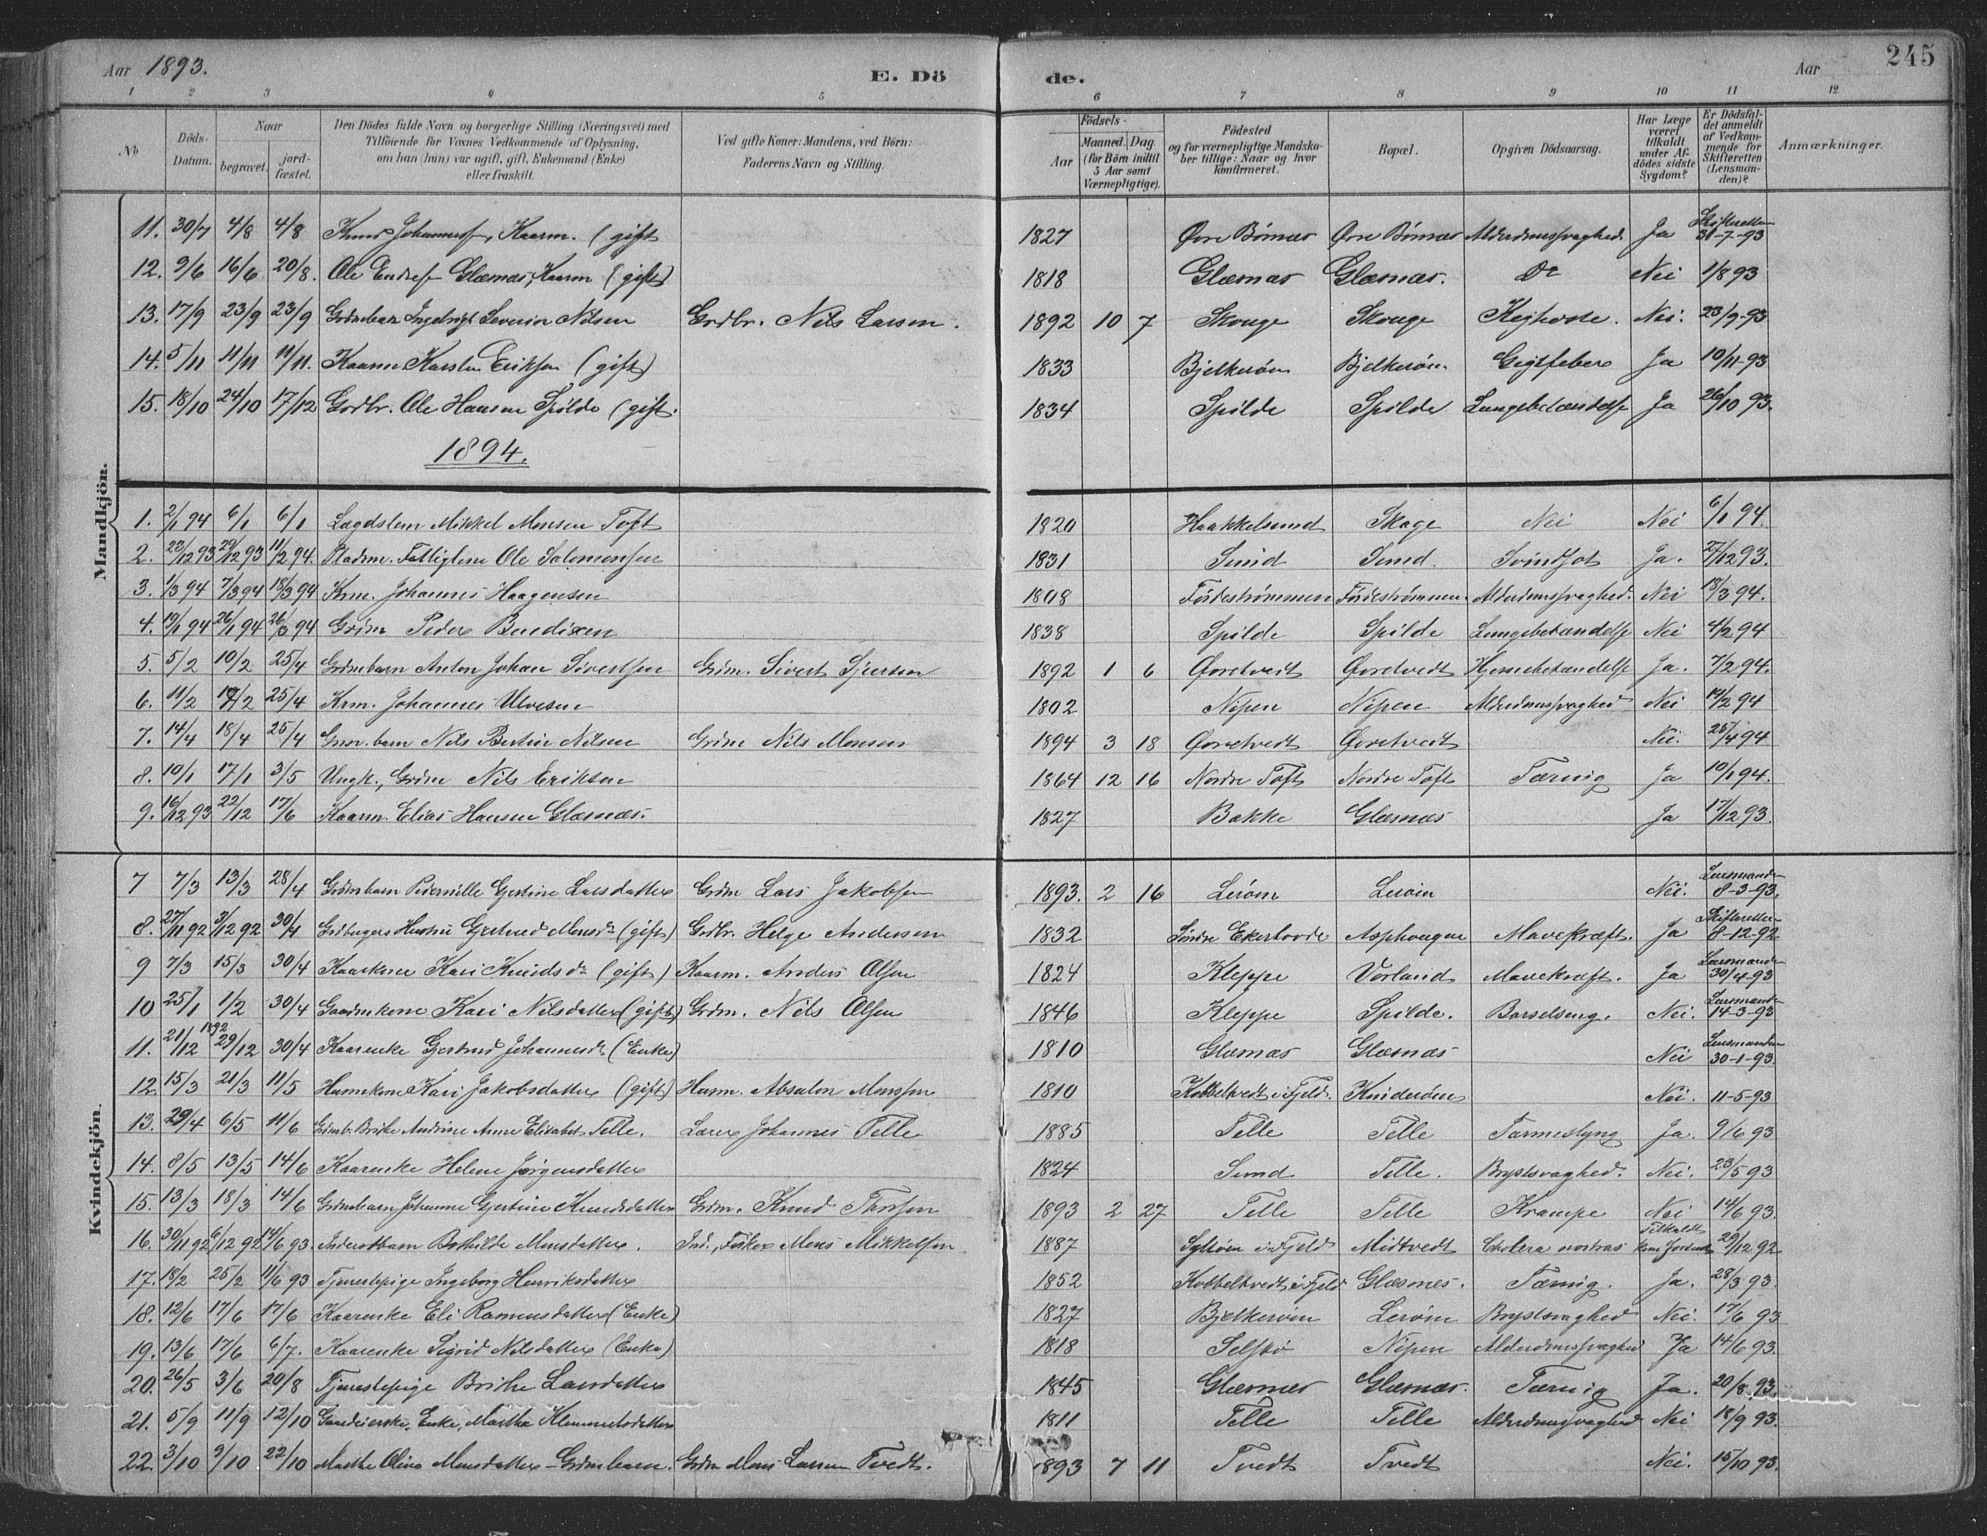 Aar 1893. E. Dö de. Aar 245
1 2 3 4 5 6 7 8 9 10 11 12
No Döds-Datum. Naar begravet. jord-fæstet. Den Dödes fulde Navn og borgerlige Stilling (Næringsvei) med Tilföiende for Voxnes Vedkommende af Oplysning, om han (hun) var ugift, gift, Enkemand (Enke) eller fraskilt. Ved gifte Koner: Mandens, ved Börn: Faderens Navn og Stilling. Födsels- Aar Maaned. Dag. (for Börn indtil 5 Aar samt Værnepligtige). Födested og for værnepligtige Mandskaber tillige: Naar og hvor konfirmeret. Bopæl. Opgiven Dödsaarsag. Har Læge været tilkaldt under Afdödes sidste Sygdom? Er Dödsfaldet anmeldt af Vedkommende for Skifteretten (Lensmanden)? Anmærkninger.
Mandkjön.
11. 30/7 4/8 4/8 Knud Johanness, Kaarm. (gift 1827 Øvre Børnæs Øvre Børnæs Alderdomssvaghed. Ja Skifteretten 31-7-93
12. 9/6 16/6 20/8. Ole Endres. Glæsnæs, Kaarm (gift) 1818 Glæsnæs Glæsnæs. Do Nei 1/8 93
13. 17/9 23/9 23/9 Grdmbarn Ingebrigt Severin Nilsen Grdbr. Nils Larsen. 1892 10 7 Skouge Skouge Kighoste. Nei. 23/9-93
14. 5/11 11/11 11/11. Kaarm. Karsten Eriksen (gift) 1833 Bjelkerøen Bjelkerøen Gigtfeber Ja 10/11-93
15. 18/10 24/10 17/12 Grdbr. Ole Hansen Spilde (gift. 1834 Spilde Spilde Lungebetændelse Ja 26/10 93.
1894.
1. 2/1 94 6/1 6/1 Lægdslem Mikkel Monsen Toft 1820 Haakkelsund Skage Nei Nei 6/1 94.
2. 23/12 93 29/12 93 11/2 94. Pladsm. Fattiglem Ole Salomonsen 1831 Sund Sund. Svindsot Ja. 27/12 93.
3. 1/3 94 7/3 94 18/3 94 Krm. Johannes Haagensen 1808 Fördeströmmen Fördeströmmen Alderdomssvaghed. Nei 18/3 94.
4. 19/1 94 26/1 94 26/3 94 Grdm Peder Bendixen 1838 Spilde Spilde Lungebetændelse Nei 4/2 94
5. 5/2 10/2 25/4 Grdmbarn Anton Johan Sivertsen Grdm. Sivert Sjursen 1892 1 6 Øvretvedt Øvretvedt Hjernebetændelse Ja. 7/2 94.
6. 11/2 19/2 25/4 Krm. Johannes Ulvesen 1802 Nipen Nipen Alderdomssvaghed Nei 19/2 94
7. 14/4 18/4 25/4 Grdm. barn Nils Bertin Nilsen Grdm Nils Monsen 1894 3 18 Øvretvedt Øvretvedt Nei. 25/4 94
8. 10/1 17/1 3/5 Ungk., Grdm Nils Eriksen 1864 12 16 Nordre Toft Nordre Toft Tæring Ja 10/1 94.
9. 16/12 93 22/12 17/6 Kaarm. Elias Hansen Glæsnæs. 1827 Bakke Glæsnæs Ja 17/12 93.
Kvindekjön.
7 7/3 13/3 28/4 Grdmbarn Pernille Gjertine Larsdatter Grdm Lars Jakobsen 1893. 2 16 Lerøen Lerøen Nei. Lensmanden 8-3-93.
8. 27/11 92 3/12 92 30/4 Grdbrugers Hustru Gjertrud Monsdr. (gift) Grdbr. Helge Andersen 1832 Søndre Ekerhovde Asphougen Mavekræft. Ja Skifteretten 8-12-92
9 7/3 15/3 30/4 Kaarkone Kari Knudsdr. (gift) Kaarm. Anders Olsen 1824 Kleppe Vorland Mavekræft. Ja Lensmanden 30/4-93
10 25/1 1/2 30/4 Gaardmkone Kari Nilsdatter (gift) Grdm. Nils Olsen 1846 Kleppe Spilde. Barselseng. Nei. Lensmanden 14-3-93
11. 21/12 1892 29/12 30/4 Kaarenke Gjertrud Johannesdr. (Enke) 1810 Glæsnæs Glæsnæs Nei Lensmanden 30-1-93.
12. 15/3 21/3 11/5 Husmkone Kari Jakobsdatter (gift) Husm. Absalon Monssen 1810 Kobbeltvedt i Fjeld. Kinderøen Nei. 11-5-93
13. 29/4 6/5 11/6 Grdmb. Brithe Andrine Anne Elisabet Telle. Lærer Johannes Telle 1885 Telle Telle Tarmeslyng Ja. 9/6 93
14. 8/5 13/5 14/6 Kaarenke Helene Jørgensdatter 1824 Sund Telle. Brystsvaghed. Nei. 23/5 93
15. 13/3 18/3 14/6 Grdmbarn Johanne Gjertine Knudsdatter Grdm. Knud Thorsen 1893 2 27 Telle Telle Krampe Nei 14/6 93.
16. 30/11 92 6/12 92 14/6 93. Inderstbarn Bothilde Monsdatter. Ind., Fisker Mons Mikkelsen 1887 Syltøen i Fjeld Midtvedt Cholera nostras Tilkaldt 29/12 92
17. 18/2 25/2 11/6 93 Tjenestepige Ingeborg Henriksdatter 1852 Kobbeltvedt, i Fjeld Glæsnæs. Tæring. Ja. 28/3 93.
18. 12/6 17/6 17/6 Kaarenke Eli Rasmusdatter (Enke) 1827 Bjelkerøen Lerøen Brystsvaghed Nei. 17/6 93
19. 13/6 17/6 6/7. Kaarenke Sigrid Nilsdatter (Enke) 1818 Selstø Nipen Alderdomssvaghed Ja 14/6 93.
20. 26/5 3/6 20/8 Tjenestepige Brithe Larsdatter 1845 Glæsnæs Glæsnæs. Tæring Ja. 20/8 93.
21. 5/9 11/9 12/10 Gaardeierske, Enke, Martha Klemmetsdatter 1811 Telle Telle Alderdomssvaghed Nei 18/9 93.
22. 3/10 9/10 22/10 Marthe Oline Monsdatter - Grdmbarn. Grdm Mons Larsen Tvedt. 1893 7 11 Tvedt Tvedt Nei. 15/10 93.